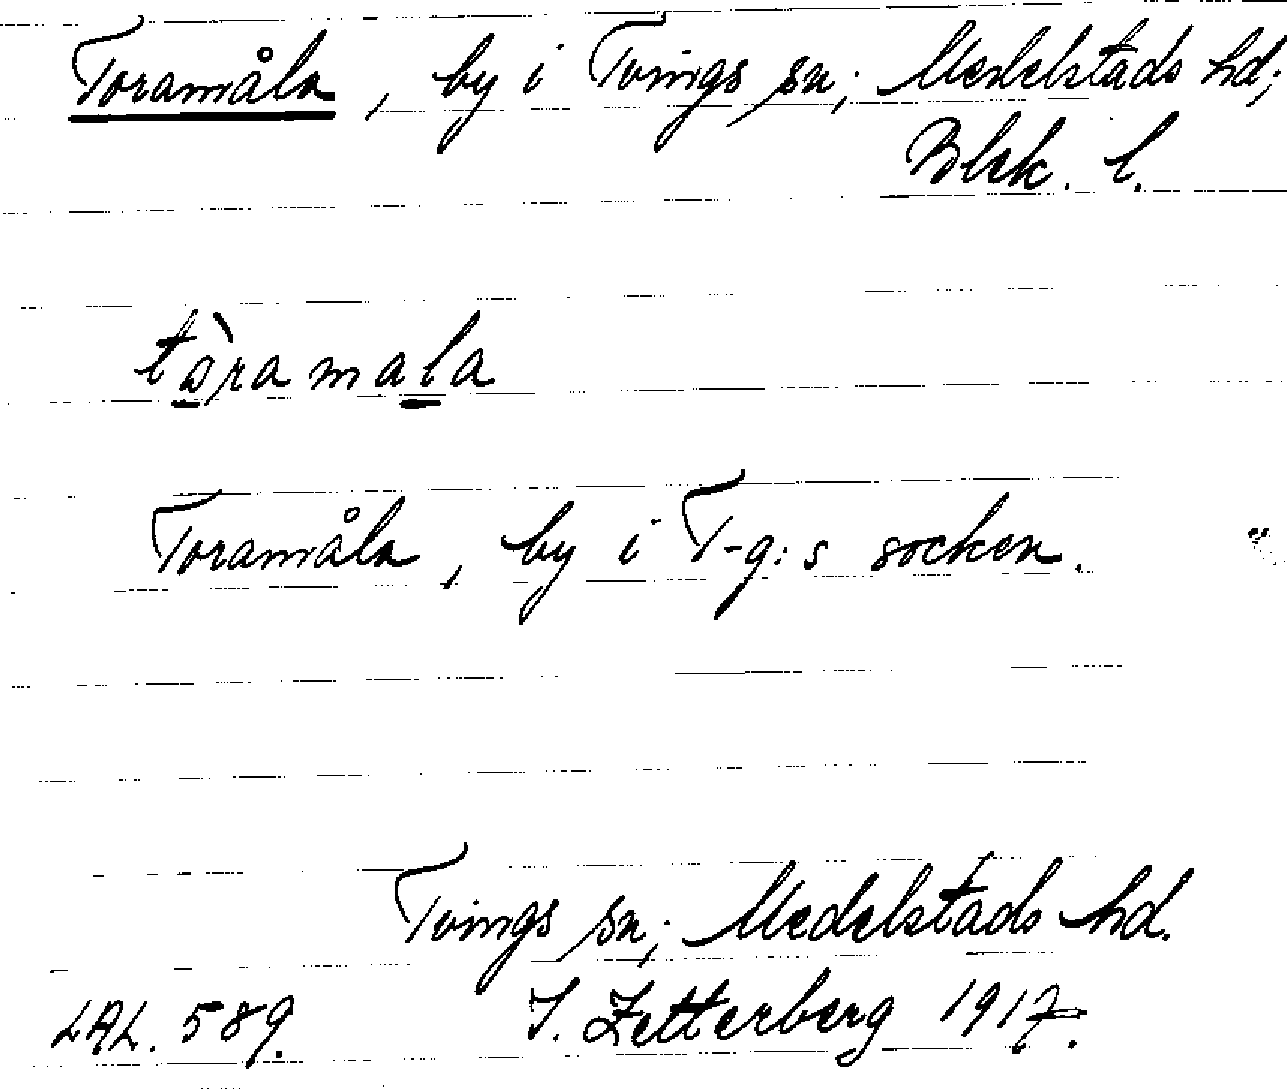 Toramåla, by i Tvings sn; Medelstads hd;
Blek. l.
tòramala
Toramåla, by i T-g:s socken.
Tvings sn; Medelstads hd.
LAL. 589. J. Zetterberg 1917.